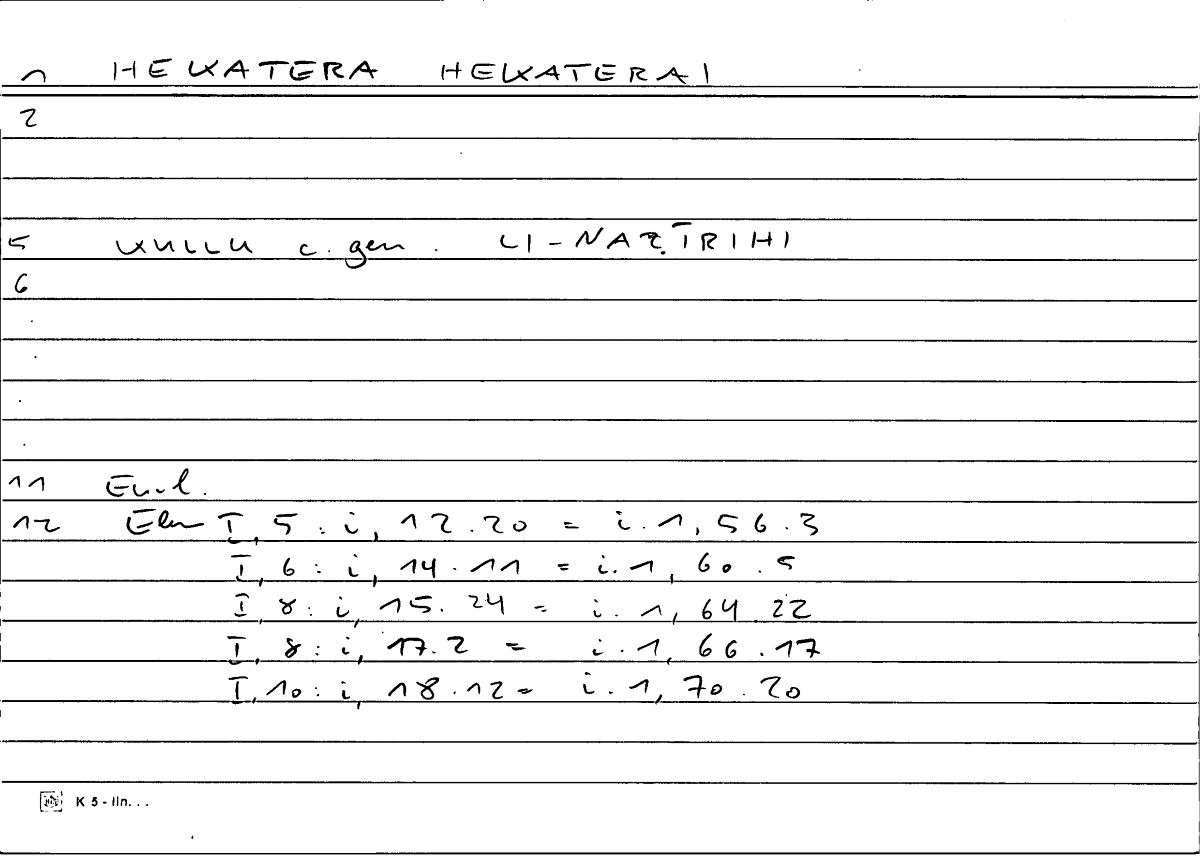 1 HEKATERA HEKATERAI
2
5 KULLU c. gen. LI-NAẒĪRIHI
6
.
.
.
.
11 Eucl.
12 Elem I, 5 : i, 12.20 = i.1, 56.3
I, 6 : i, 14.11 = i.1, 60.5
I, 8 : i, 15.24 = i.1, 64.22
I, 8 : i, 17.2 = i.1, 66.17
I, 10 : i, 18.12 = i.1, 70.20
K 5 - lin. . .